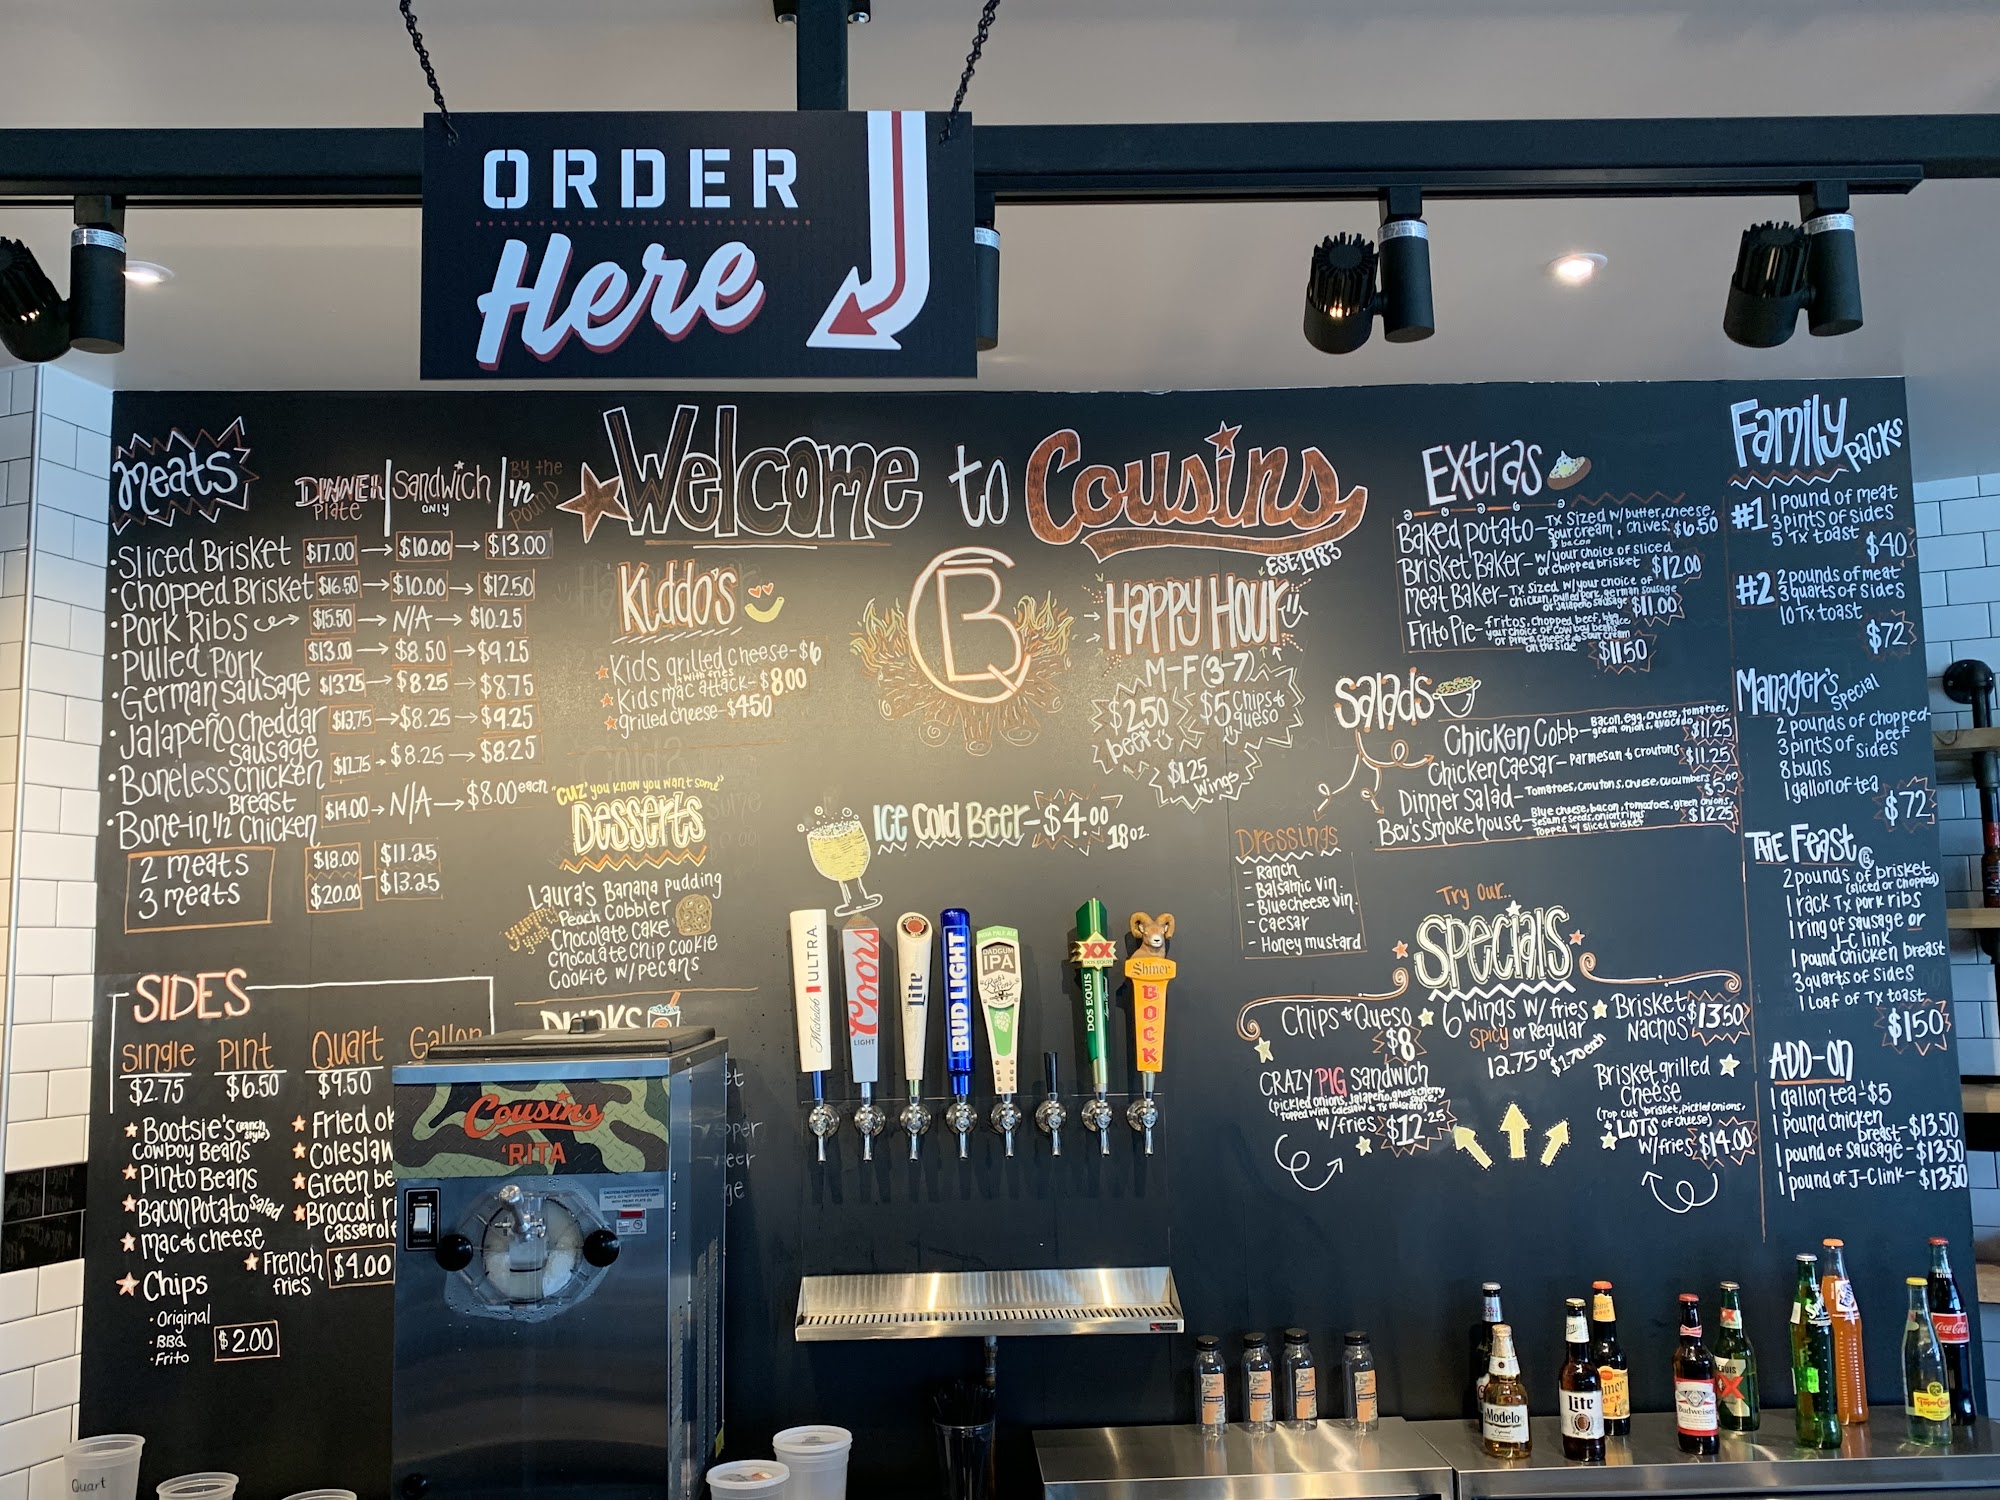 ORDER
Here
Meats
DINNER Plate
Sandwich ONLY
By the 1/2 pound
Sliced Brisket $17.00 $10.00 $13.00
Chopped Brisket $16.50 $10.00 $12.50
Pork Ribs $15.50 N/A $10.25
Pulled Pork $13.00 $8.50 $9.25
German Sausage $13.75 $8.25 $8.75
Jalapeño Cheddar Sausage $13.75 $8.25 $9.25
Boneless Chicken Breast $12.75 $8.25 $8.25
Bone-in 1/2 Chicken $14.00 N/A $8.00 each
2 meats $18.00 $11.25
3 meats $20.00 $13.25
SIDES
Single Pint Quart Gallon
$2.75 $6.50 $9.50
Bootsie's (ranch style)
Cowboy Beans
Pinto Beans
Bacon Potato Salad
Mac & cheese
Chips
Original
BBQ
Frito
$2.00
Fried
Coleslaw
Green
Broccoli
French fries $4.00
Welcome to Cousins
Est. 1983
Kiddo's
Kids grilled cheese - $6
with fries
Kids mac attack - $8.00
grilled cheese - $4.50
"cuz' you know you want some"
Desserts
Laura's Banana Pudding
Peach Cobbler
Chocolate Cake
Chocolate Chip Cookie
Cookie w/ pecans
yum yum
Drinks
Cousins
'RITA
CBQ
Happy Hour
M-F (3-7)
$2.50 beer
$5 Chips & queso
$1.25 Wings
Ice Cold Beer - $4.00
18oz.
Michelob ULTRA
Coors LIGHT
Lite
BUD LIGHT
INDIA PALE ALE
DADGUM IPA
XX
DOS EQUIS
Shiner
BOCK
Extras
Baked Potato - TX Sized w/ butter, cheese,
sour cream, chives, & bacon $6.50
Brisket Baker - w/ your choice of sliced
or chopped brisket $12.00
Meat Baker - TX Sized w/ your choice of
chicken, pulled pork, german sausage
or jalapeño sausage $11.00
Frito Pie - fritos, chopped beef,
your choice of cowboy beans
or pinto, cheese, & sour cream
on the side $11.50
Salads
Chicken Cobb - Bacon, egg, cheese, tomatoes,
green onion & avocado $11.25
Chicken Caesar - Parmesan & croutons $11.25
Dinner Salad - Tomatoes, croutons, cheese, cucumbers $5.00
Bev's Smokehouse - Blue cheese, bacon, tomatoes, green onions,
sesame seeds, onion rings
Topped w/ sliced brisket $12.25
Dressings
- Ranch
- Balsamic Vin.
- Blue cheese vin.
- Caesar
- Honey mustard
Try Our...
Specials
Chips & Queso
$8
6 Wings w/ fries
Spicy or Regular
12.75 or $1.70 each
Brisket Nachos $13.50
Crazy Pig Sandwich
(pickled onions, jalapeño, ghost cherry sauce,
topped with coleslaw & TX mustard)
w/ fries $12.25
Brisket grilled Cheese
(Top cut brisket, pickled onions,
& LOTS of cheese)
w/ fries $14.00
Family Packs
#1 1 pound of meat
3 pints of sides
5 TX toast $40
#2 2 pounds of meat
3 quarts of sides
10 TX toast
$72
Manager's Special
2 pounds of chopped beef
3 pints of sides
8 buns
1 gallon of tea
$72
The Feast
2 pounds of brisket
(sliced or chopped)
1 rack TX pork ribs
1 ring of sausage or
J-C link
1 pound chicken breast
3 quarts of sides
1 loaf of TX toast
$150
ADD-ON
1 gallon tea - $5
1 pound chicken breast - $13.50
1 pound of sausage - $13.50
1 pound of J-C link - $13.50
Modelo
Lite
Shiner BOCK
Budweiser
XX
Coca-Cola
Topo Chico
Quart